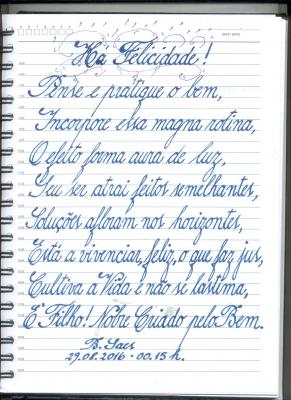 Há Felicidade!
Pense e pratique o bem,
Incorpore essa magna rotina,
O efeito forma aura de luz,
Seu ser atrai feitos semelhantes,
Soluções afloram nos horizontes,
Está a vivenciar, feliz, o que faz jus,
Cultiva a Vida e não se lastima,
É Filho! Nobre Criado pelo Bem.
B. Saes
29.08.2016 - 00.15 h.